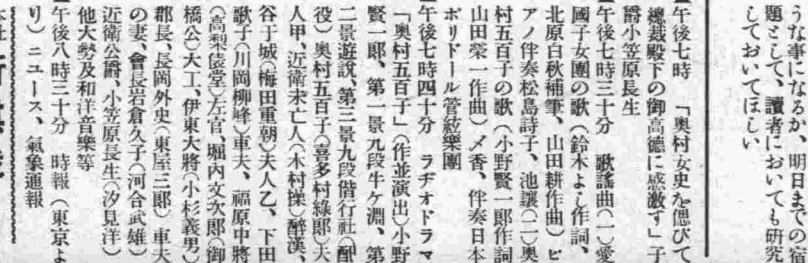 うな事になるか、明日までの宿
題として、讀者においても研究
しておいてほしい
午後七時　「奥村女史を偲びて
總裁殿下の御高德に感激す」子
爵小笠原長生
午後七時三十分　歌謠曲(一)愛
國子女團の歌(鈴木よし作詞、
北原白秋補筆、山田耕作曲)ピ
アノ伴奏松島詩子、池讓(二)奥
村五百子の歌(小野賢一郎作詞
山田榮一作曲)〆香、伴奏日本
ポリドール管絃樂團
午後七時四十分　ラヂオドラマ
「奥村五百子」(作並演出)小野
賢一郎、第一景九段牛ケ淵、第
二景遊說、第三景九段偕行社(配
役)奥村五百子(喜多村綠郎)大
人甲、近衛未亡人(木村操)醉漢、
谷干城(梅田重朝)夫人乙、下田
歌子(川岡柳峰)車夫、福原中將
(高梨俵堂)左官、堀内文次郎(御
橋公)大工、伊東大將(小杉義男)
郡長、長岡外史(東屋三郎)車夫
の妻、會長岩倉久子(河合武雄)
近衛公爵、小笠原長生(汐見洋)
他大勢及和洋音樂等
午後八時三十分　時報(東京よ
り)ニュース、氣象通報